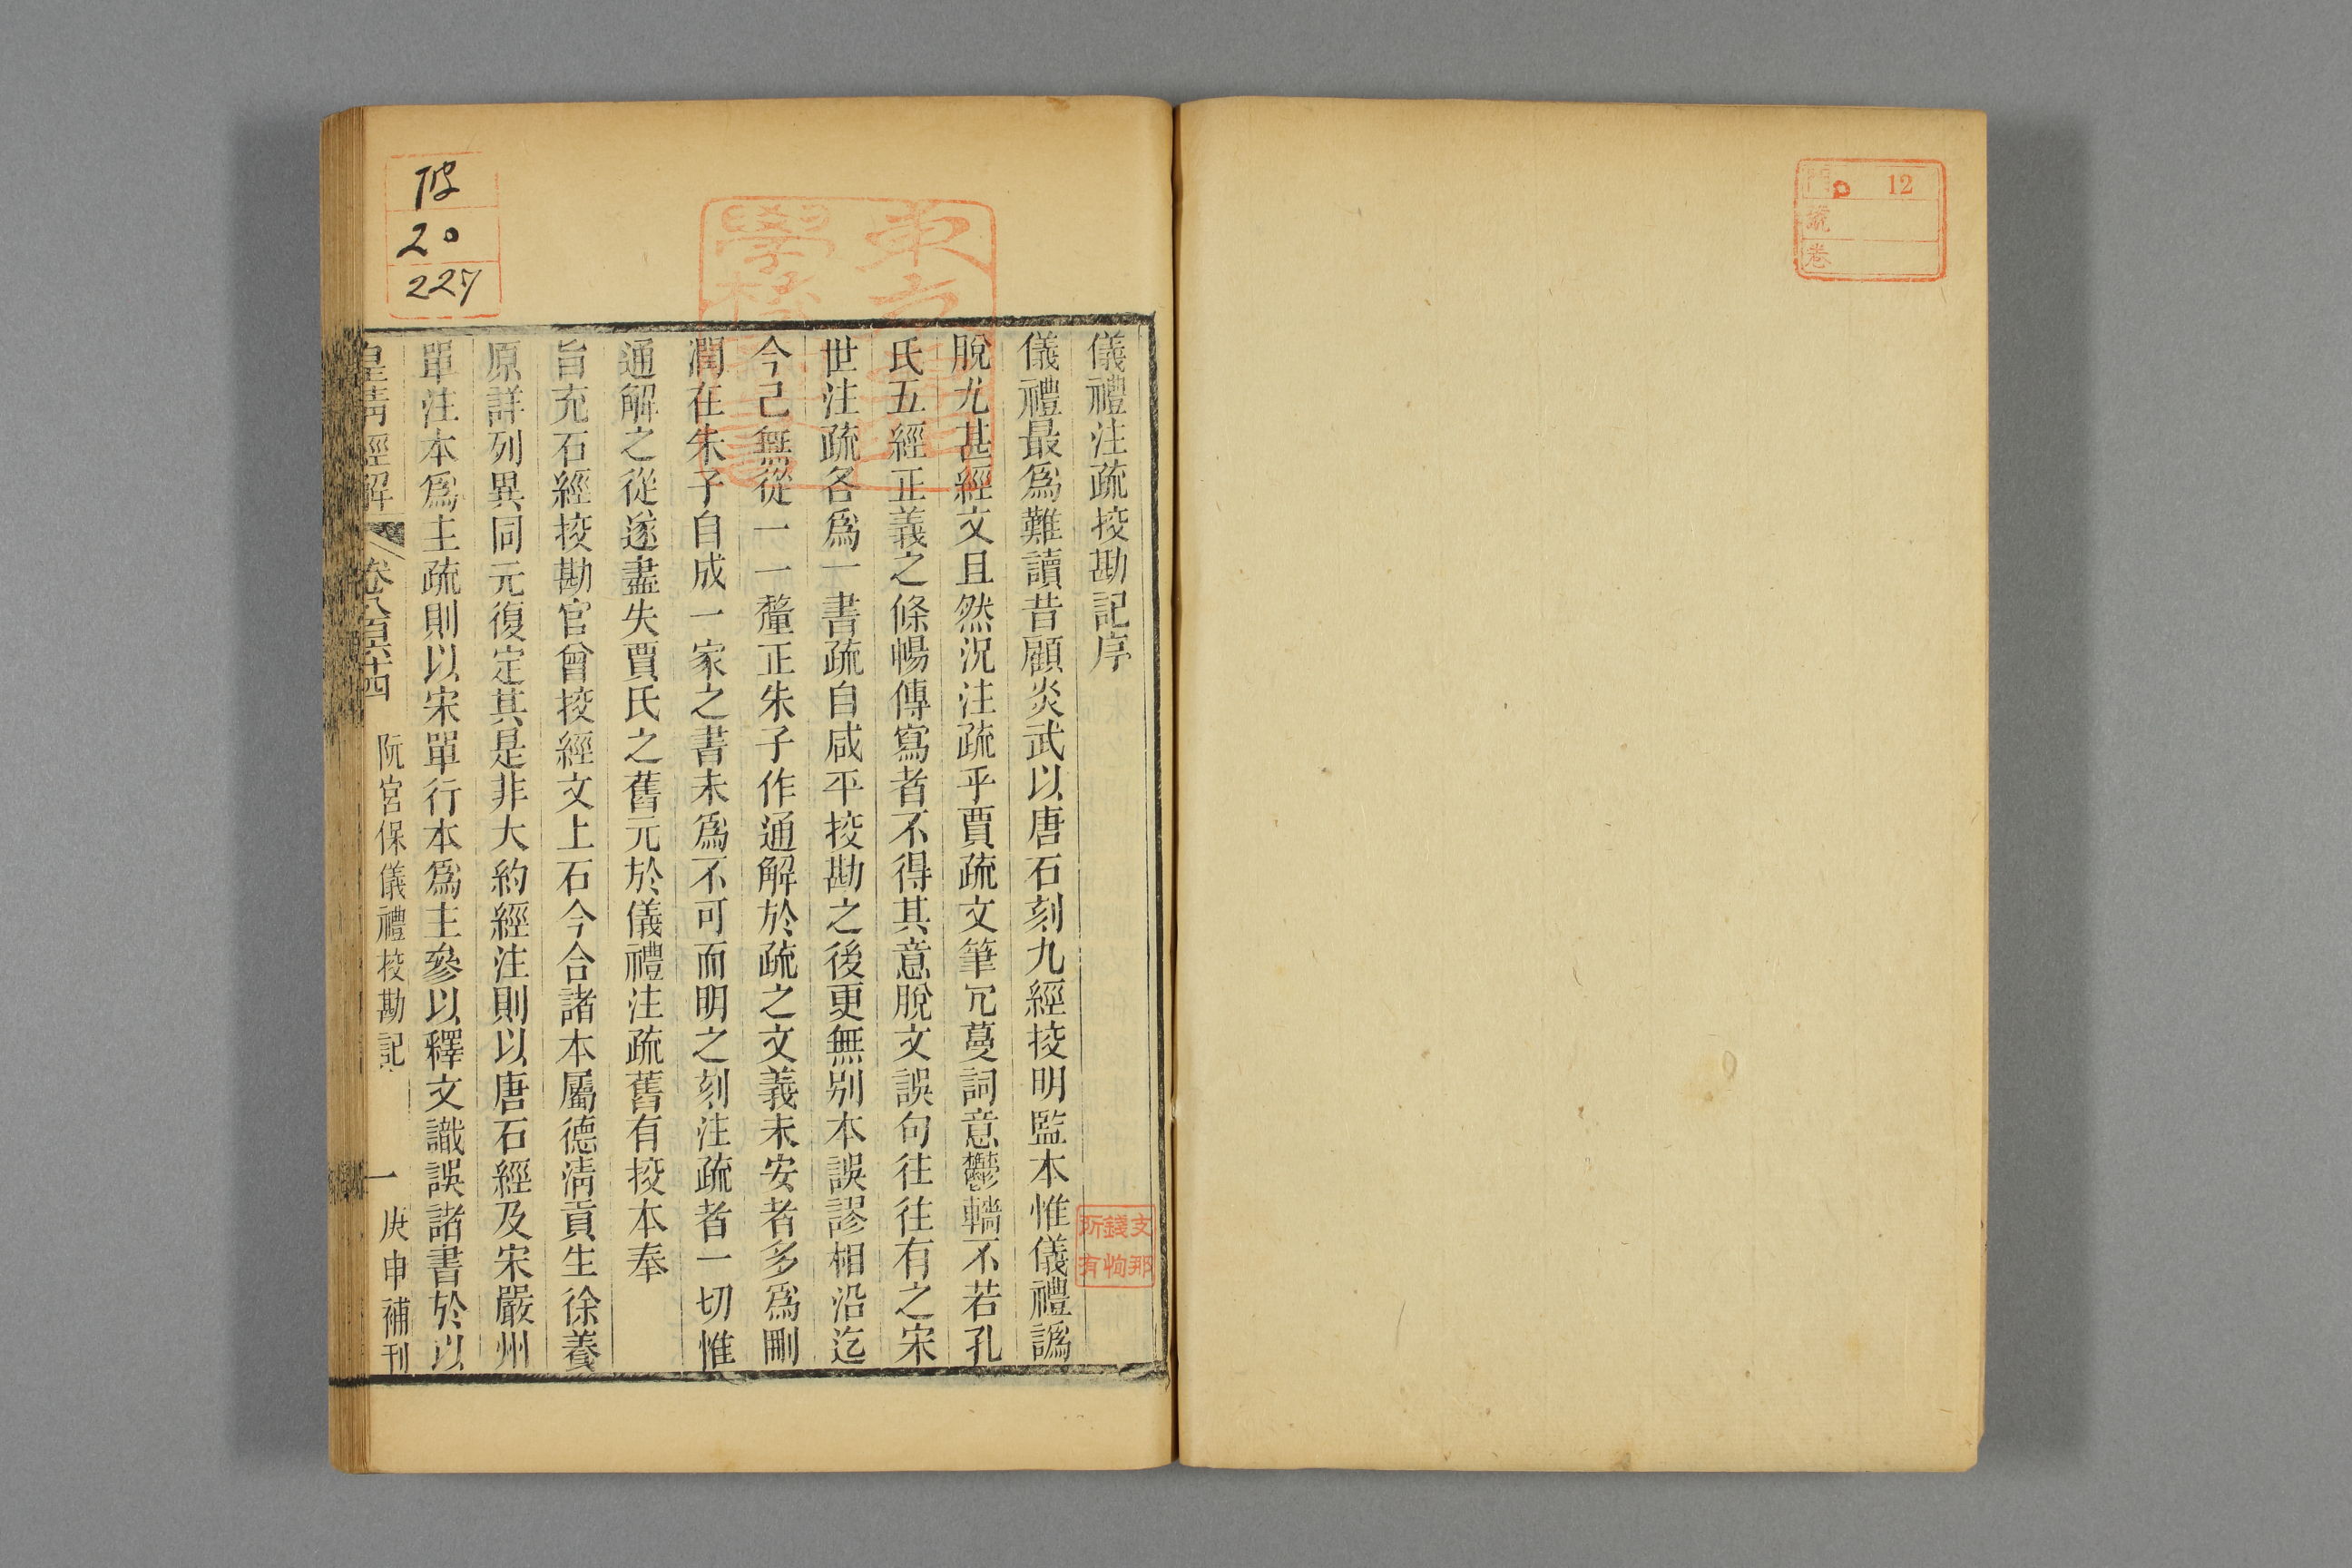 12
門
號
卷
儀禮注疏挍勘記序
儀禮最爲難讀昔顧炎武以唐石刻九經挍明監本惟儀禮譌
脫尤甚經文且然況注疏乎賈疏文筆冗蔓詞意鬱轖不若孔
氏五經正義之條暢傳寫者不得其意脫文誤句往往有之宋
世注疏各爲一書疏自咸平挍勘之後更無别本誤謬相沿迄
今已無從一一釐正朱子作通解於疏之文義未安者多爲刪
潤在朱子自成一家之書未爲不可而明之刻注疏者一切惟
通解之從遂盡失賈氏之舊元於儀禮注疏舊有挍本奉
旨充石經挍勘官曾挍經文上石今合諸本屬德清貢生徐養
原詳列異同元復定其是非大約經注則以唐石經及宋嚴州
單注本爲主疏則以宋單行本爲主參以釋文識誤諸書於以
皇清經解
卷八百六十四
阮宮保儀禮校勘記
一
庚申補刊
支那
錢恂
所有
20
227